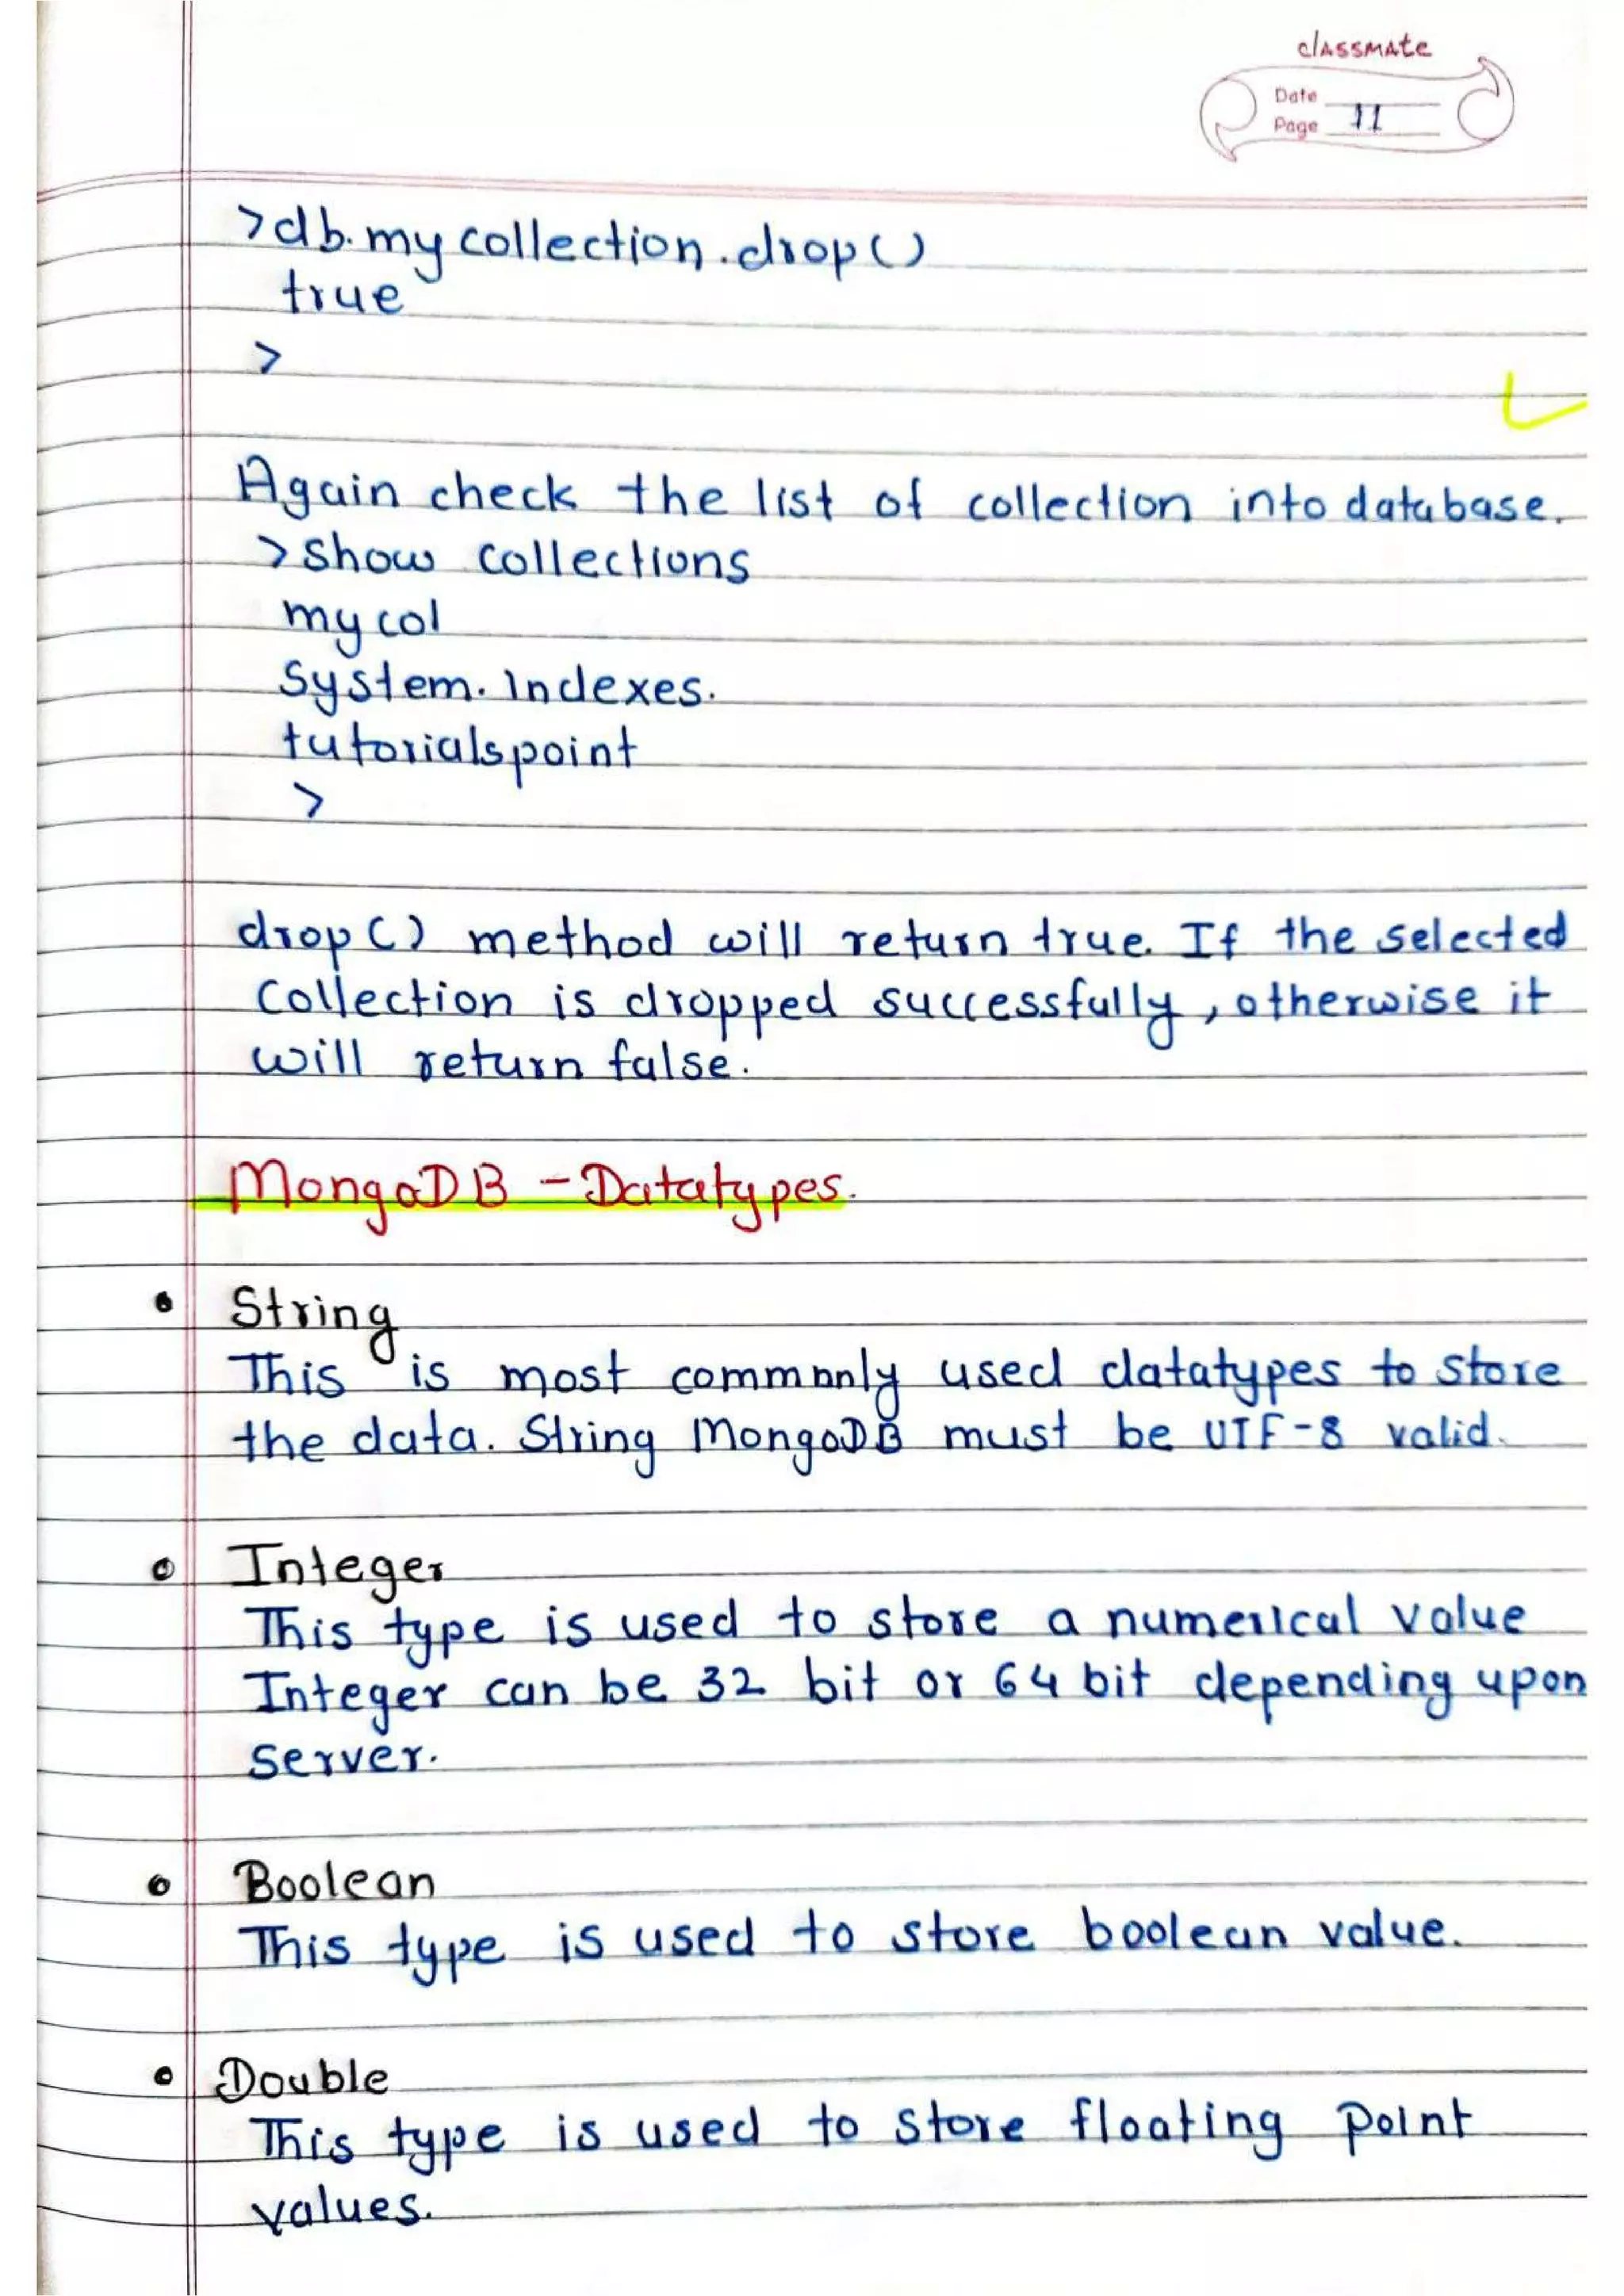 classmate
Date
Page 11
>db.mycollection.drop()
true
>
Again check the list of collection into database.
>show collections
mycol
System.Indexes.
tutorialspoint
>
drop() method will return true. If the selected
Collection is dropped successfully, otherwise it
will return false.
MongoDB - Datatypes.
• String
This is most commonly used datatypes to store
the data. String MongoDB must be UTF-8 valid.
• Integer
This type is used to store a numerical value
Integer can be 32 bit or 64 bit depending upon
server.
• Boolean
This type is used to store boolean value.
• Double
This type is used to store floating point
values.